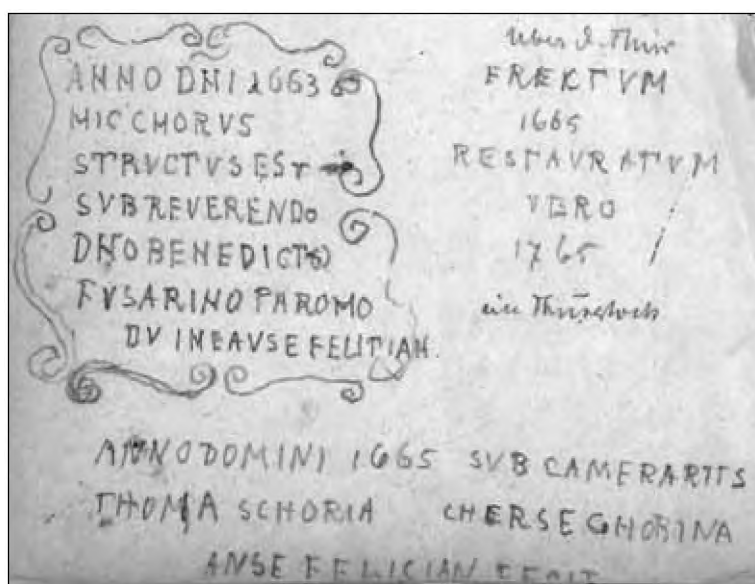 ANNO DNI 1663
HIC CHORVS
STRVCTVS EST
SVB REVERENDO
DNO BENEDICTO
FVSARINO PAROMO
DV INEAVSE FELITIAN.
über d. Thür
EREKTVM
1665
RESTAVRATVM
VERO
1765
ein
ANNO DOMINI 1665 SVB CAMERARIIS
THOMA SCHORIA CHERSE GHOBINA
ANSE FELICIAN FECIT